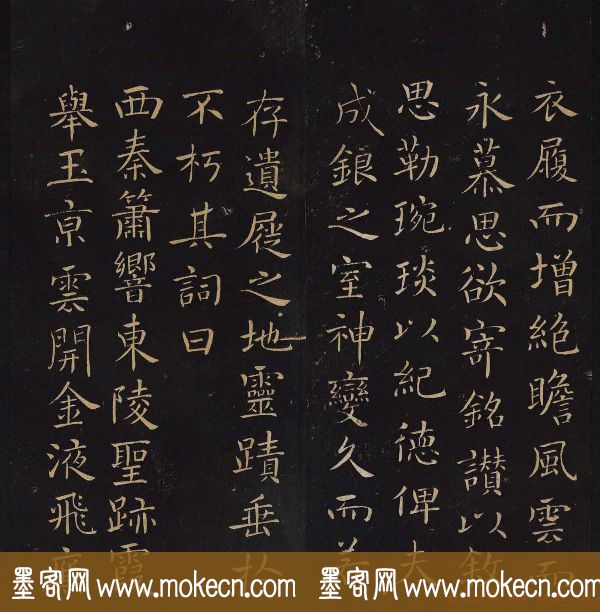 衣履而增絶瞻風雲而
永慕思欲寄銘讃以
思勒琬琰以紀德俾夫
成銀之室神變久而
存遺屣之地靈蹟垂於
不朽其詞曰
西秦簫響東陵聖跡霞
舉玉亰雲開金液飛
墨客网 www.mokecn.com 墨客网 www.mokecn.com